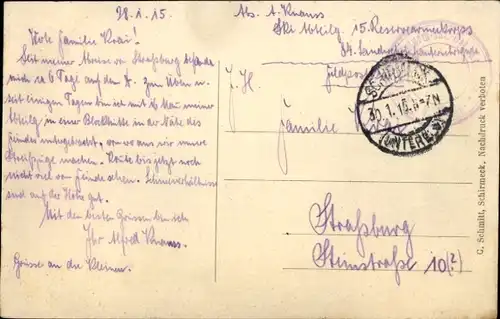 28.1.15.
Familie
Seit meiner Abreise von Straßburg befinde
ich ca 6 Tage auf dem zum Üben u.
seit einigen Tagen bin ich mit 16 Mann meiner
Abteilg in einer Blockhütte in der Nähe des
Feindes untergebracht, von wo aus wir unsere
Streifzüge machen. Habe bis jetzt noch
nicht viel vom Feinde sehen. Schneeverhältnisse
sind auf der Höhe gut.
Mit den besten Grüssen bin ich
Ihr Alfred Knauss.
Grüsse an die Kleinen.
Abs. A. Knauss
Ski Abteilg. 15. Reservearmeekorps
Feldpost
Familie
SCHIRMECK
30.1.15.
(UNTERELS.)
Straßburg
Steinstraße 10(?)
C. Schmitt, Schirmeck, Nachdruck verboten